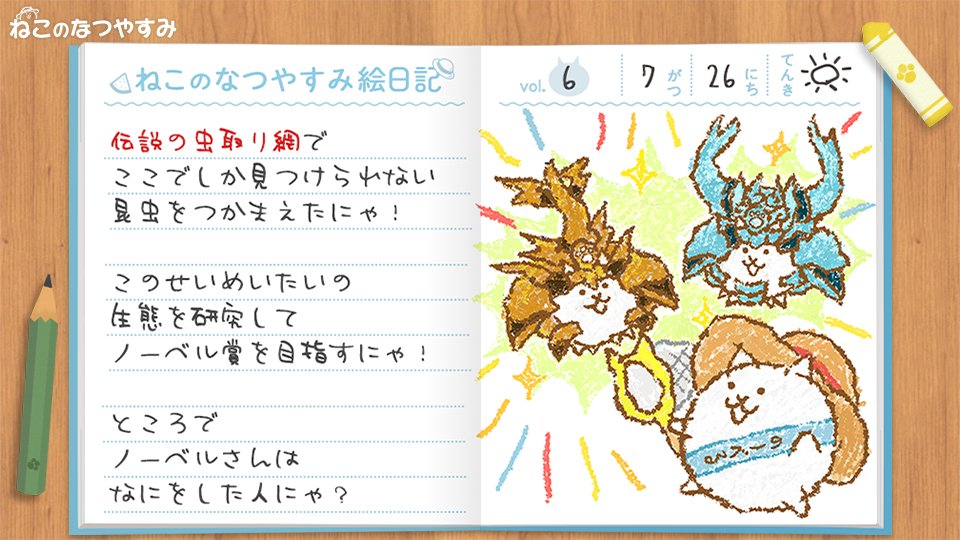 ねこのなつやすみ
ねこのなつやすみ絵日記
vol. 6 7 がつ 26 にち てんき
伝説の虫取り網で
ここでしか見つけられない
昆虫をつかまえたにゃ！
このせいめいたいの
生態を研究して
ノーベル賞を目指すにゃ！
ところで
ノーベルさんは
なにをした人にゃ？